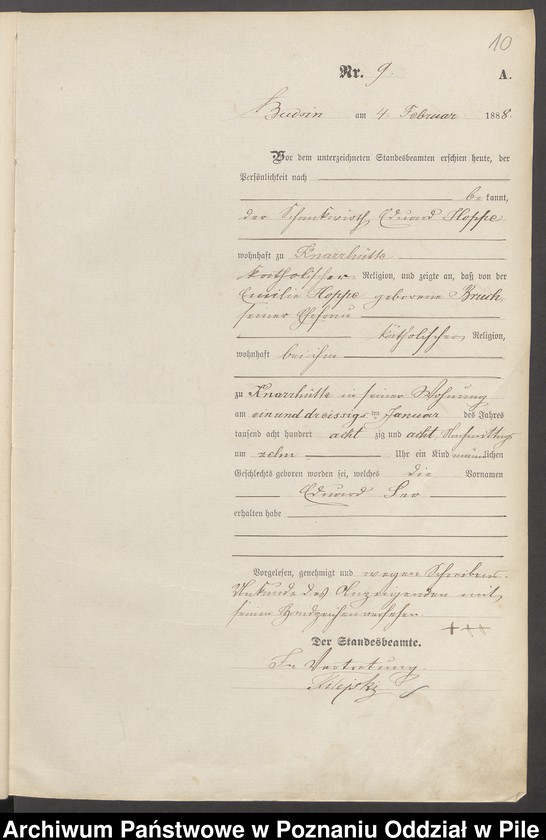 10
Nr. 9.
A.
Budsin am 4. Februar 1888.
Vor dem unterzeichneten Standesbeamten erschien heute, der
Persönlichkeit nach
be kannt,
der Schankwirth Eduard Hoppe
wohnhaft zu Knarrhütte
katholischer Religion, und zeigte an, daß von der
Emilie Hoppe geborene Bruch,
seiner Ehefrau
katholischer Religion,
wohnhaft bei ihm
zu Knarrhütte in seiner Wohnung
am einunddreissigsten Januar des Jahres
tausend acht hundert acht zig und acht, Nachmittags
um zehn Uhr ein Kind männlichen
Geschlechts geboren worden sei, welches die Vornamen
Eduard Leo
erhalten habe
Vorgelesen, genehmigt und wegen Schreibens-
Unkunde des Anzeigenden mit
seinem Handzeichen versehen
+++
Der Standesbeamte.
In Vertretung
Archiwum Państwowe w Poznaniu Oddział w Pile